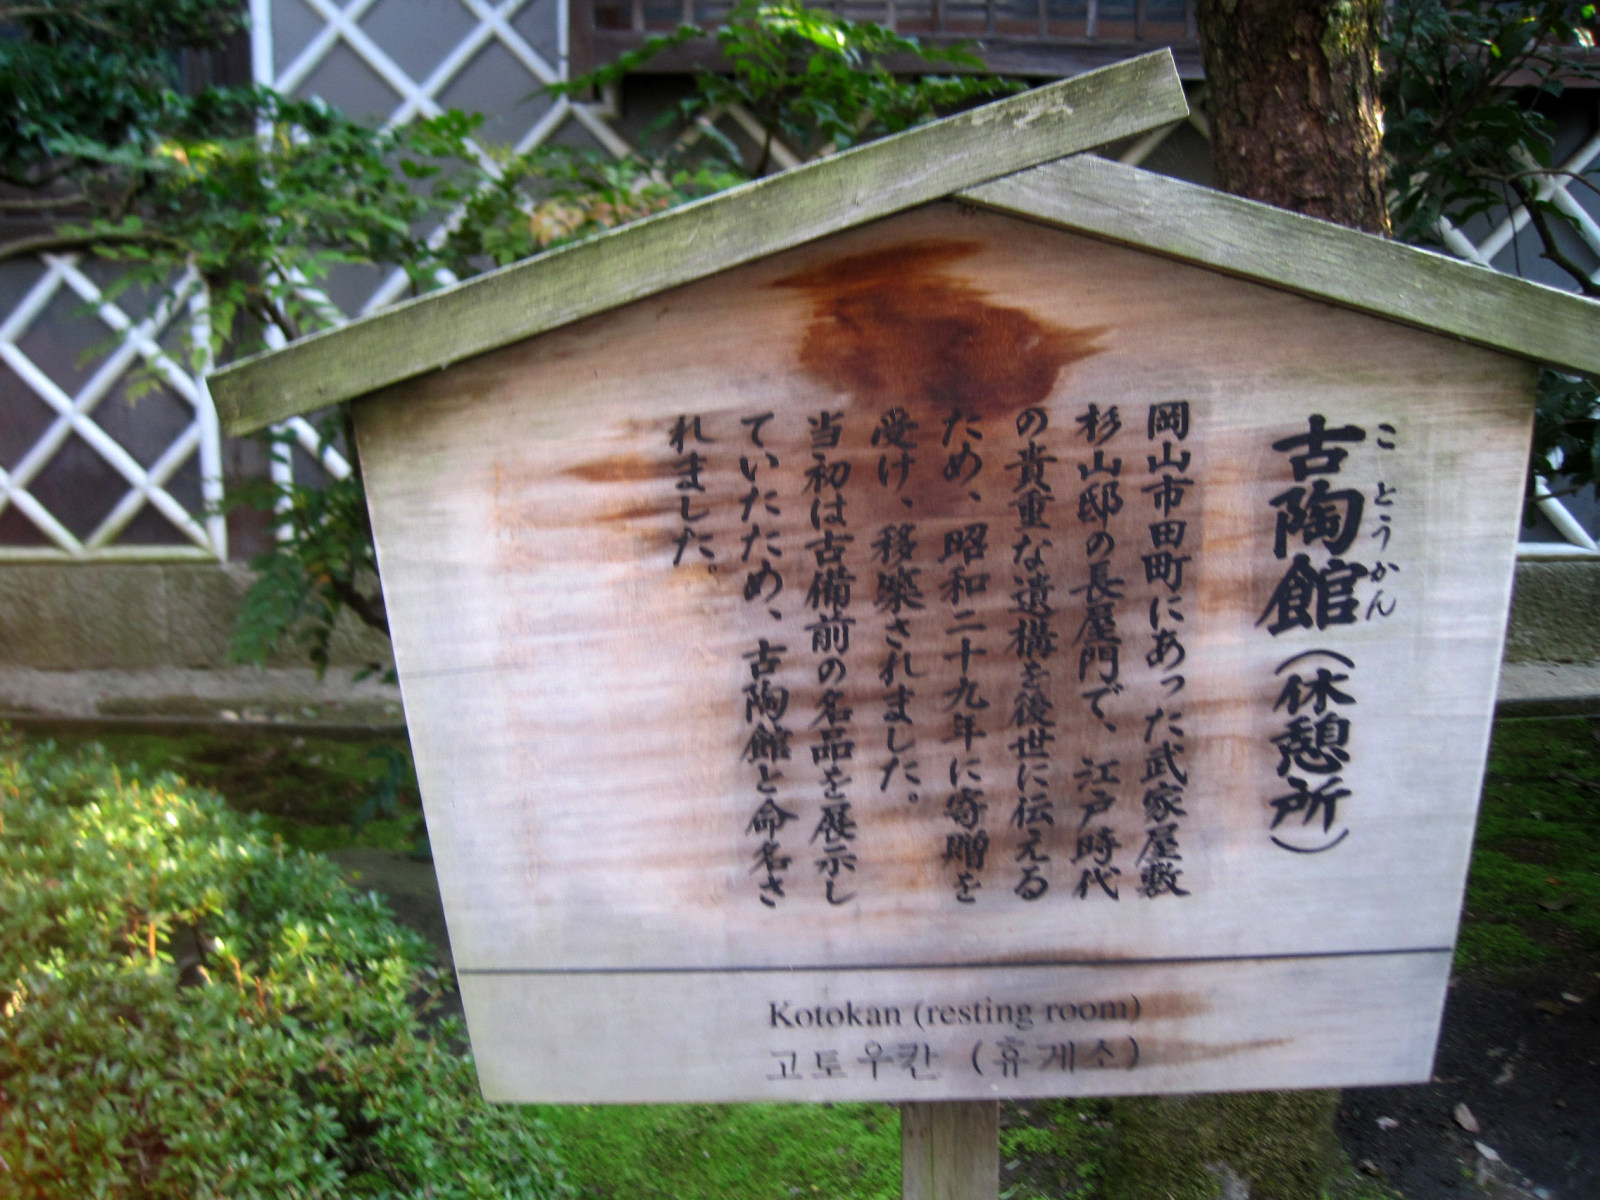 古陶館（休憩所）
ことうかん
岡山市田町にあった武家屋敷
杉山邸の長屋門で、江戸時代
の貴重な遺構を後世に伝える
ため、昭和二十九年に寄贈を
受け、移築されました。
当初は古備前の名品を展示し
ていたため、古陶館と命名さ
れました。
Kotokan (resting room)
고토우칸 (휴게소)